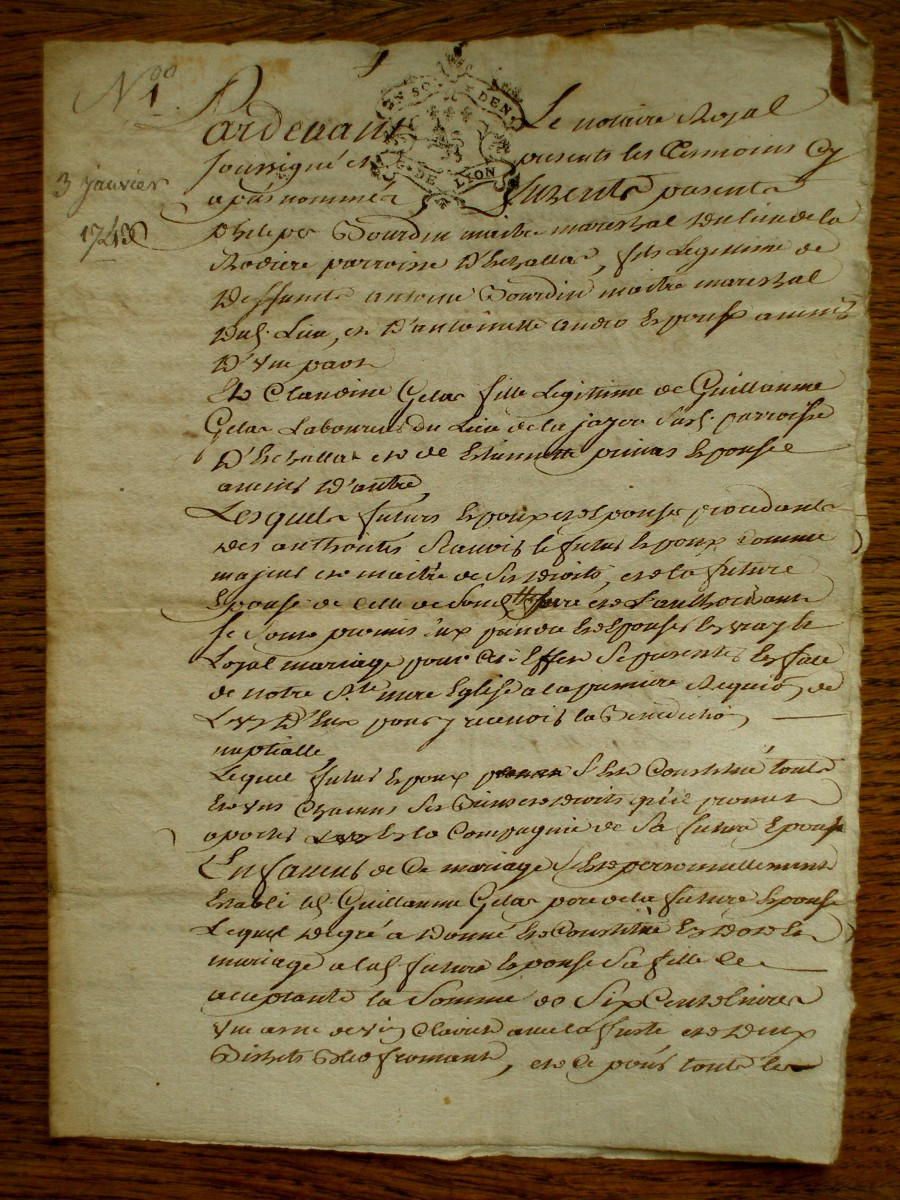 N.º 1
3 janvier
1748
EN SO DEN
DE LYON
Pardevant Le notaire Royal
soussigné et presents les Tesmoins cy
apres nommés, furent presents
philipes Bourdin maitre mareshal du lieu de la
Rodiere parroisse D'Echallas, fils Legittime de
Deffunct antoine Bourdin maitre mareshal
dud. Lieu, et D'antoinette andro Espouse amiés
D'une part
Et Claudine Gelas fille Legittime de Guillaume
Gelas Laboureur du Lieu de la susd. parroisse
D'Echallas et de Estiennette privas Espouse
amiés D'autre,
Lesquels futurs Espoux et Espouse procedants
des authorités scavoir le futur Espoux Comme
majeur et maitre de ses droits, et la future
Espouse de celle de sond. pere et L'authorisant
se sont promis eux prendre et Espouser En vray &
Loyal mariage pour cet Effet se presenter En face
de notre Ste mere Eglise a la premiere Requion de
L'un D'Eux pour y recevoir la Benediction
nuptialle
Lequel futur Espoux s'est Constitué touts
Et uns Chacuns ses Biens et droits qu'il promet
aporter En la Compagnie de sa future Epouse
En faveur de Ce mariage s'est personnellement
Establi led. Guillaume Gelas pere de la future Espouse
Lequel de gré a Donné et Constitué En Dot de
mariage a lad. future Espouse sa fille Ce
acceptante la Somme de Six Cent Livres
une de Clavier avec la et deux
Bichets Bled fromant, et Ce pour touts les